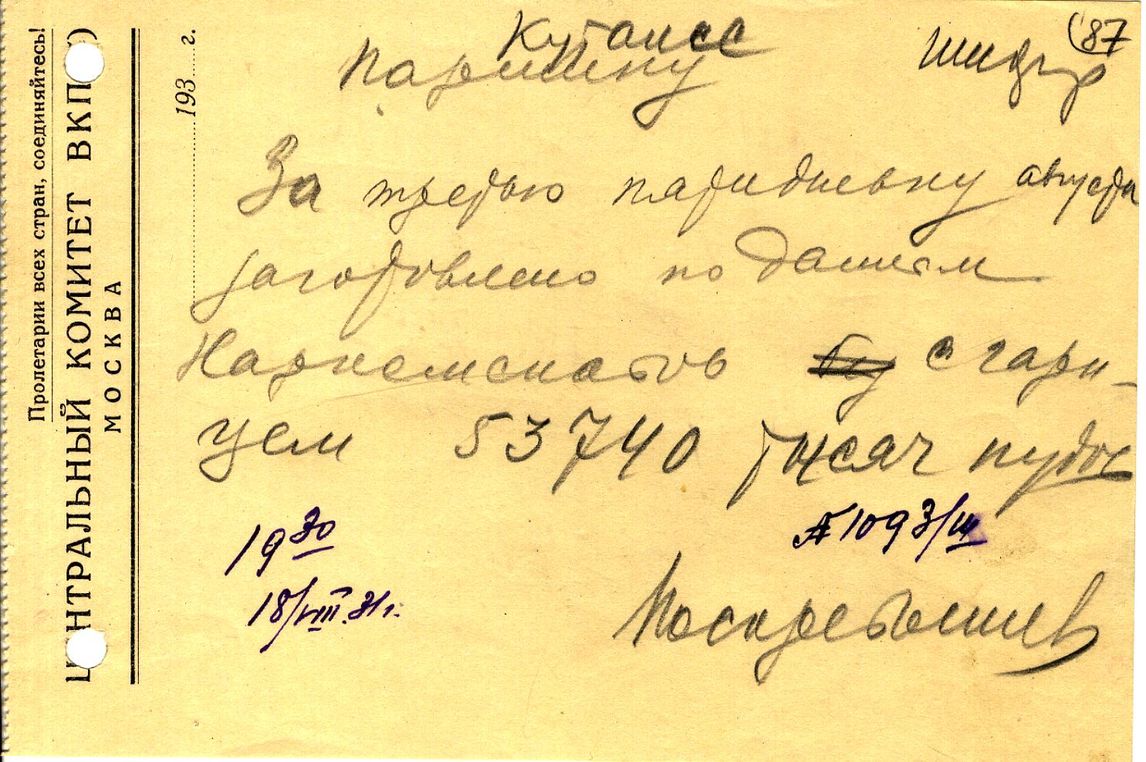 Пролетарии всех стран, соединяйтесь!
ЦЕНТРАЛЬНЫЙ КОМИТЕТ ВКП
МОСКВА
193 г.
87
Кутаисс
Паришну
шифр
За третью пятидневку августа
заготовлено по данным
Наркомснабов с гарн-
цем 53740 тысяч пудов
19 30
18/VIII.31г.
№1093/ш
Поскребышев